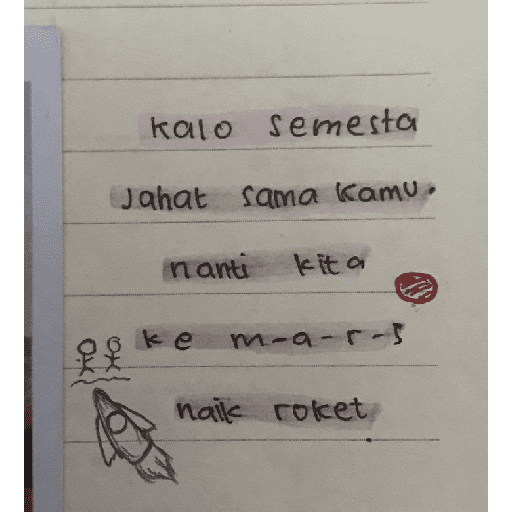 kalo semesta
Jahat sama kamu.
nanti kita
ke m-a-r-s
naik roket